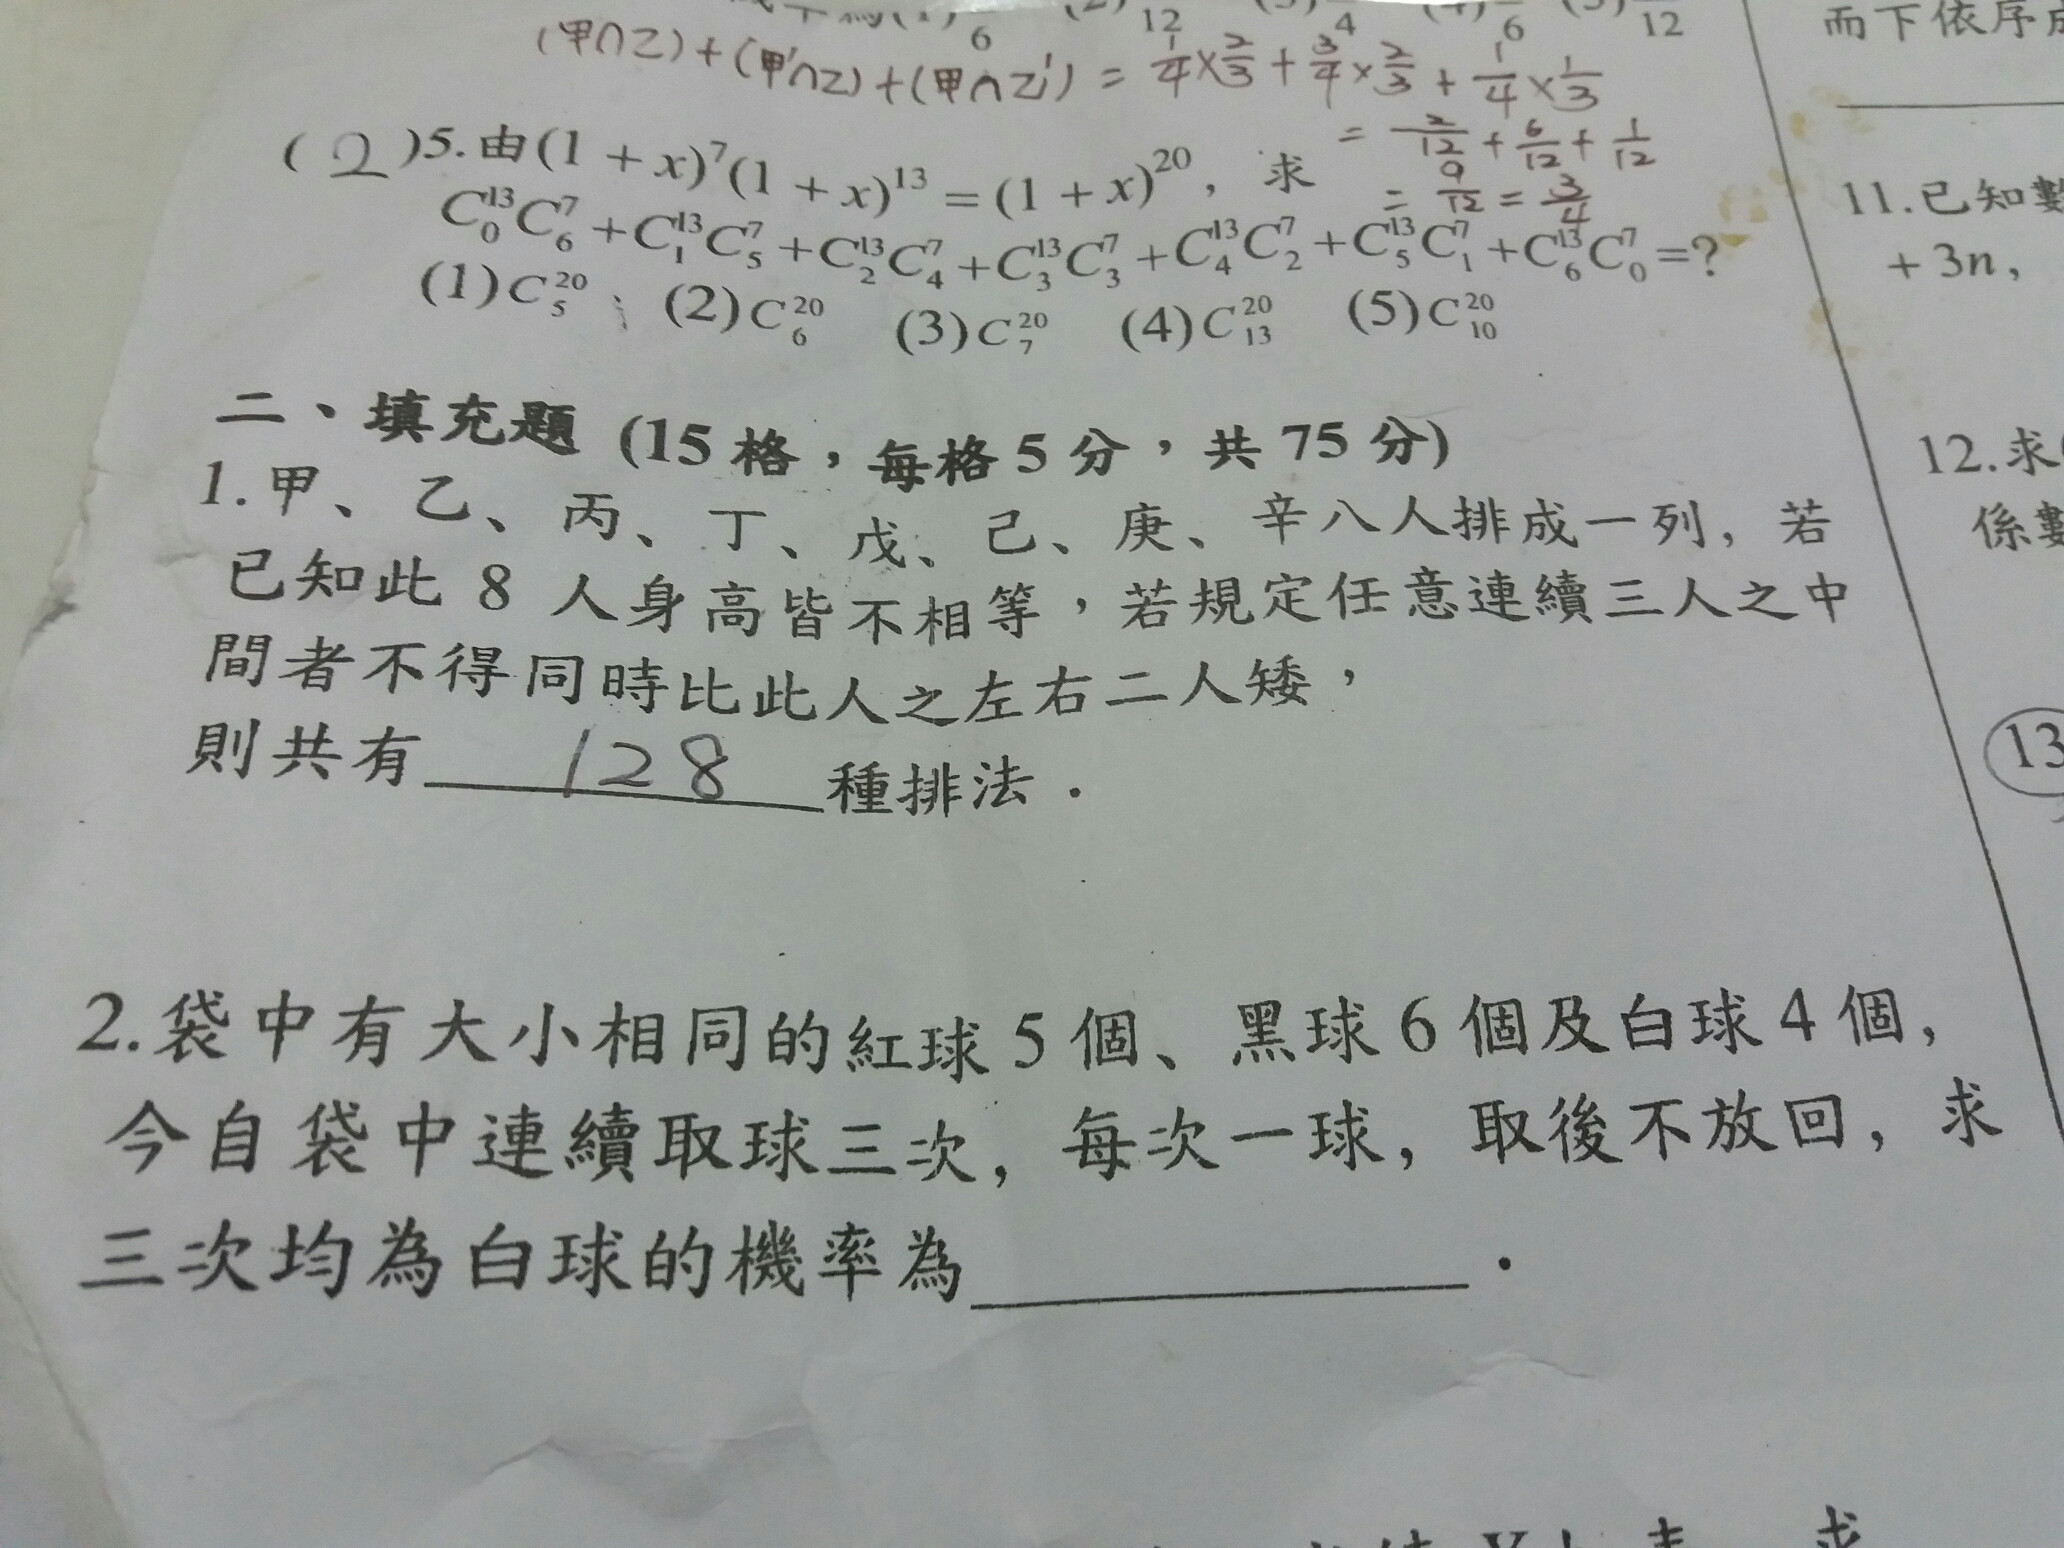 6 (2) 12 4 6 12
(甲∩乙)+(甲'∩乙)+(甲∩乙') = 1/4×2/3+3/4×2/3+1/4×1/3
= 2/12+6/12+1/12
= 9/12 = 3/4
(2)5.由(1+x)⁷(1+x)¹³=(1+x)²⁰, 求
C₀¹³C₆⁷+C₁¹³C₅⁷+C₂¹³C₄⁷+C₃¹³C₃⁷+C₄¹³C₂⁷+C₅¹³C₁⁷+C₆¹³C₀⁷=?
(1)C₅²⁰ (2)C₆²⁰ (3)C₇²⁰ (4)C₁₃²⁰ (5)C₁₀²⁰
二、填充題 (15格，每格5分，共75分)
1.甲、乙、丙、丁、戊、己、庚、辛八人排成一列, 若
已知此 8 人身高皆不相等，若規定任意連續三人之中
間者不得同時比此人之左右二人矮，
則共有 128 種排法．
2.袋中有大小相同的紅球5個、黑球6個及白球4個,
今自袋中連續取球三次, 每次一球, 取後不放回, 求
三次均為白球的機率為＿＿＿．
求
而下依序
11.已知數
+3n,
12.求
係數
13